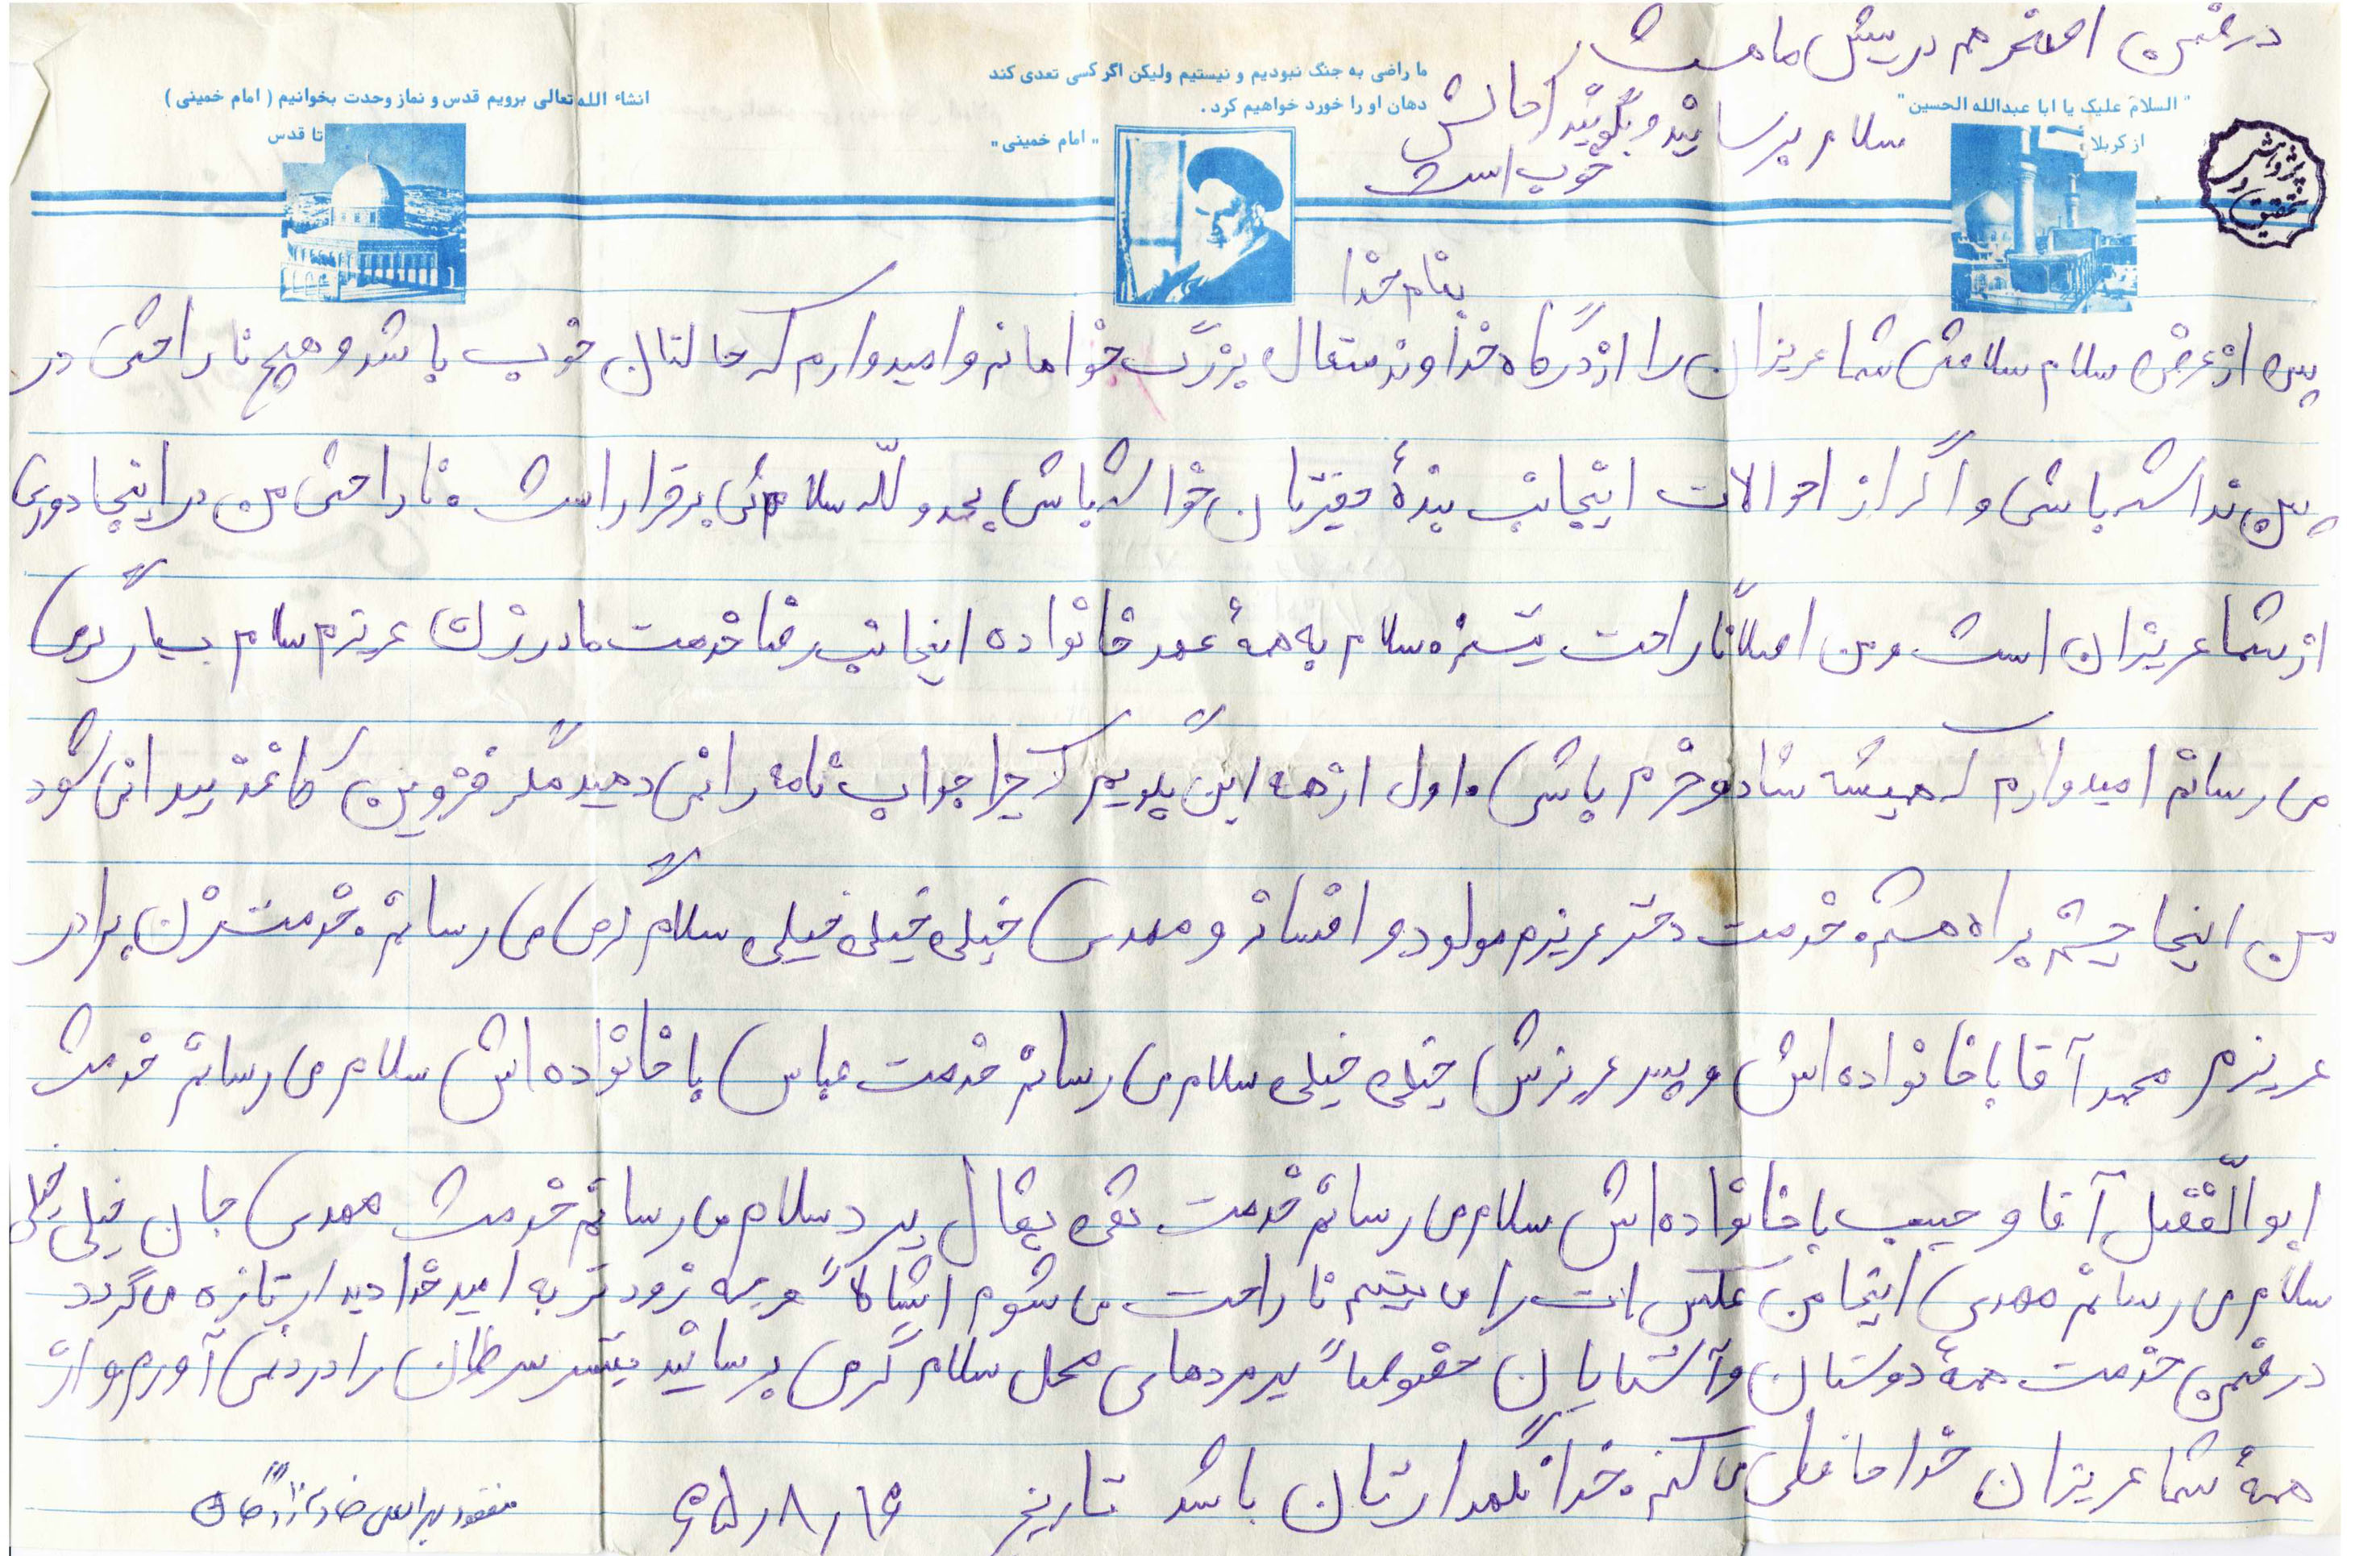 در ضمن اصغر هم در پیش ما هست
سلام برسانید و بگویند که حالش
خوب است
" السلام علیک یا ابا عبدالله الحسین "
از کربلا
ما راضی به جنگ نبودیم و نیستیم ولیکن اگر کسی تعدی کند
دهان او را خورد خواهیم کرد .
" امام خمینی "
انشاء الله تعالی برویم قدس و نماز وحدت بخوانیم ( امام خمینی )
تا قدس
پژوهش و تحقیق
بنام خدا
پس از عرض سلام سلامتی شما عزیزان را از درگاه خداوند متعال بزرگ خواهانم و امیدوارم که حالتان خوب باشد و هیچ ناراحتی در
پیش نداشته باشی و اگر از احوالات اینجانب بندهٔ حقیرتان خواسته باشی بحمدولله سلامتی برقرار است . ناراحتی من در اینجا دوری
از شما عزیزان است و من اصلاً ناراحت نیستم . سلام به همهٔ خانواده اینجانب رضا خدمت مادر عزیزم سلام بسیار گرمی
می رسانم امیدوارم که همیشه شاد و خرم باشی . اول از همه این بگویم که چرا جواب نامه را نمی دهید مگر قزوین کاغذ پیدا نمی شود
من اینجا چشم براه هستم . خدمت دختر عزیزم مولود و افسانه و مهدی خیلی خیلی خیلی سلام گرمی می رسانم . خدمت زن برادر
عزیزم محمد آقا با خانواده اش و پسر عزیزش خیلی خیلی سلام می رسانم خدمت عباس با خانواده اش سلام می رسانم خدمت
ابوالفضل آقا و حبیب با خانواده اش سلام می رسانم خدمت تقی بقال سلام می رسانم خدمت مهدی جان خیلی خیلی
سلام می رسانم مهدی اینجا من عکس ات را می بینم ناراحت می شوم هر چه زودتر به امید خدا دیدار تازه می گردد
در ضمن خدمت همهٔ دوستان و آشنایان خصوصاً پیرمردهای محل سلام گرمی برسانید بیشتر سرتان را درد نمی آورم و از
همهٔ شما عزیزان خداحافظی می کنم . خدا نگهدارتان باشد تاریخ ۶۵٫۸٫۱۶